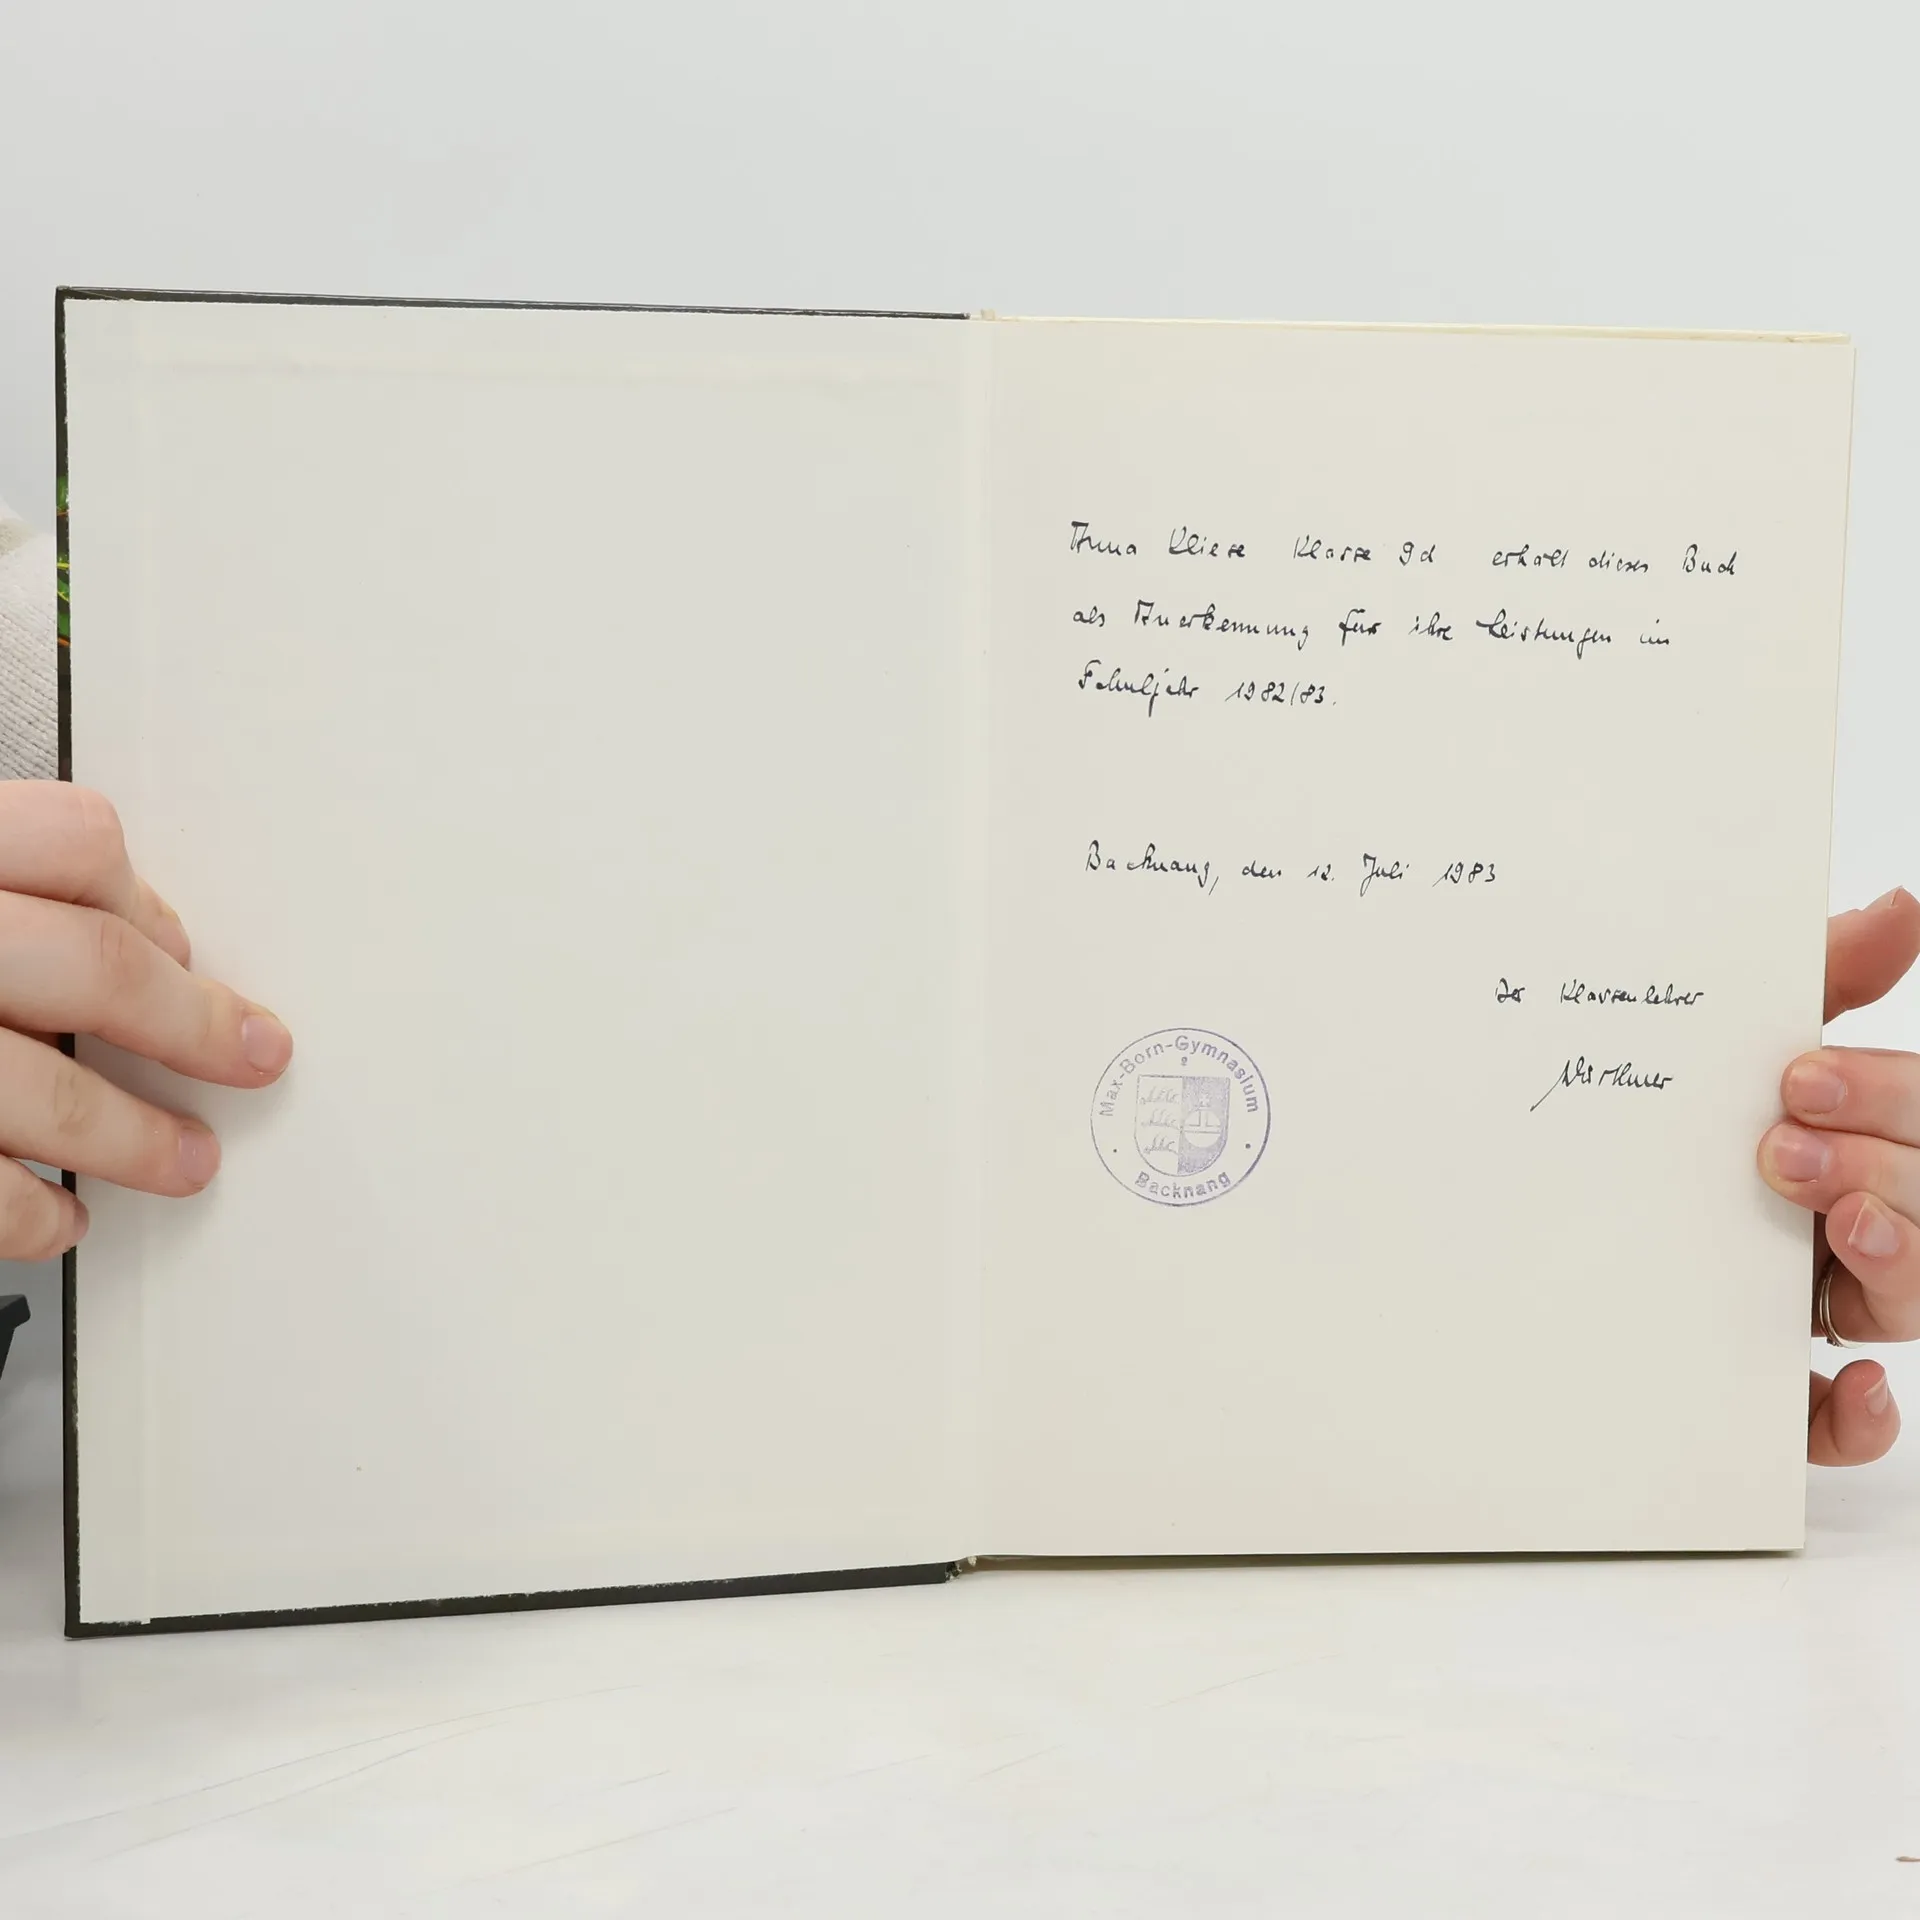 Anna Kliese Klasse 9d erhält dieses Buch
als Anerkennung für ihre Leistungen im
Schuljahr 1982/83.
Backnang, den 12. Juli 1983
Der Klassenlehrer
Max-Born-Gymnasium
Backnang